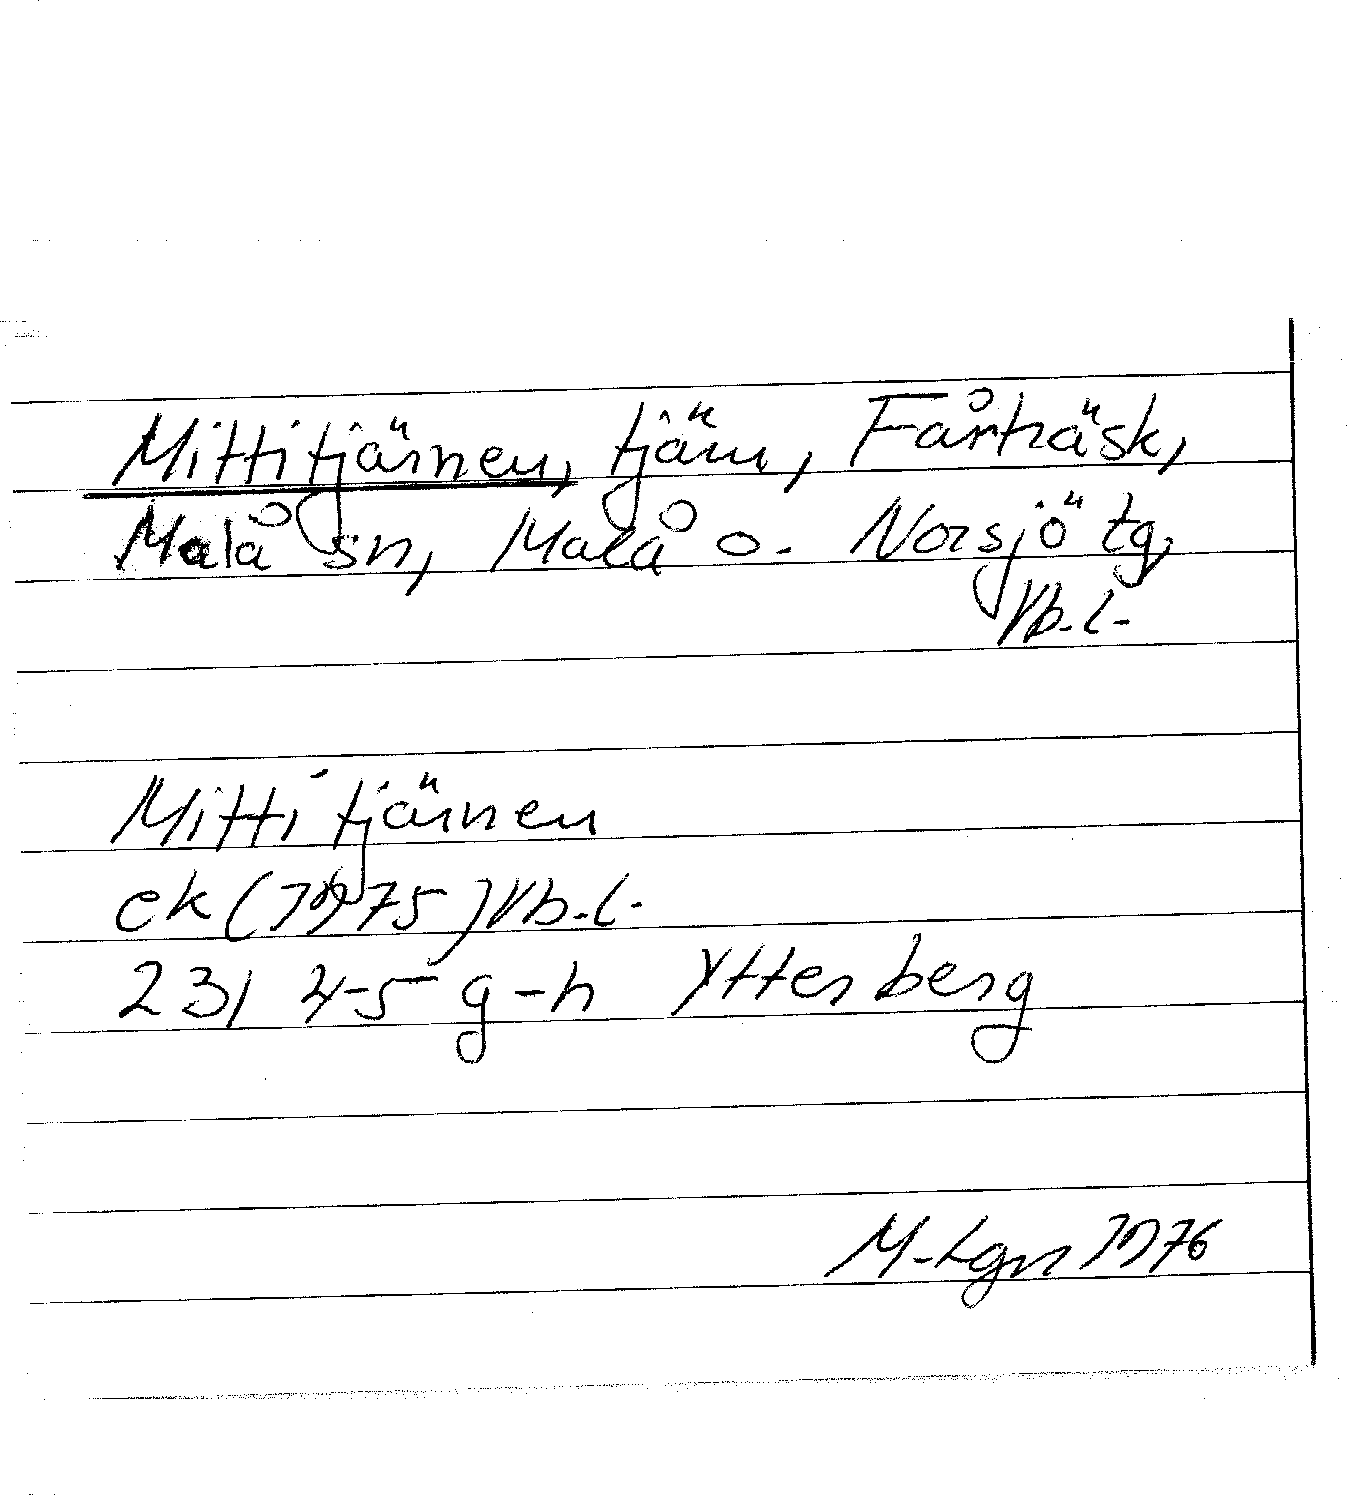 Mittitjärnen, tjärn, Fårträsk,
Malå sn, Malå o. Norsjö tg,
Vb.l.
Mittitjärnen
ek (1975) Vb.l.
231 4-5 g-h Ytterberg
M-tgn 1976